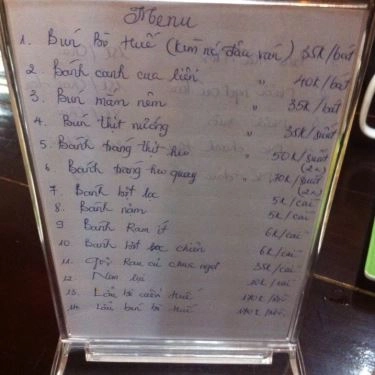 Menu
1. Bún Bò Huế (kim 35K/bát
2. Bánh canh cua liền " 40K/bát
3. Bún mắm nêm " 35K/bát
4. Bún thịt nướng " 35K/suất
5. Bánh tráng thịt heo " 50K/suất (2n)
6. Bánh tráng heo quay " 70K/suất (2n)
7. Bánh bột lọc 5K/cái
8. Bánh nậm 5K/cái
9 Bánh Ram ít 6K/cái
10 Bánh bột lọc chiên 6K/cái
11. Gỏi chua ngọt 35K/cái
12. Nem lụi 10K/cái
13. Lẩu Huế
14. Lẩu Huế